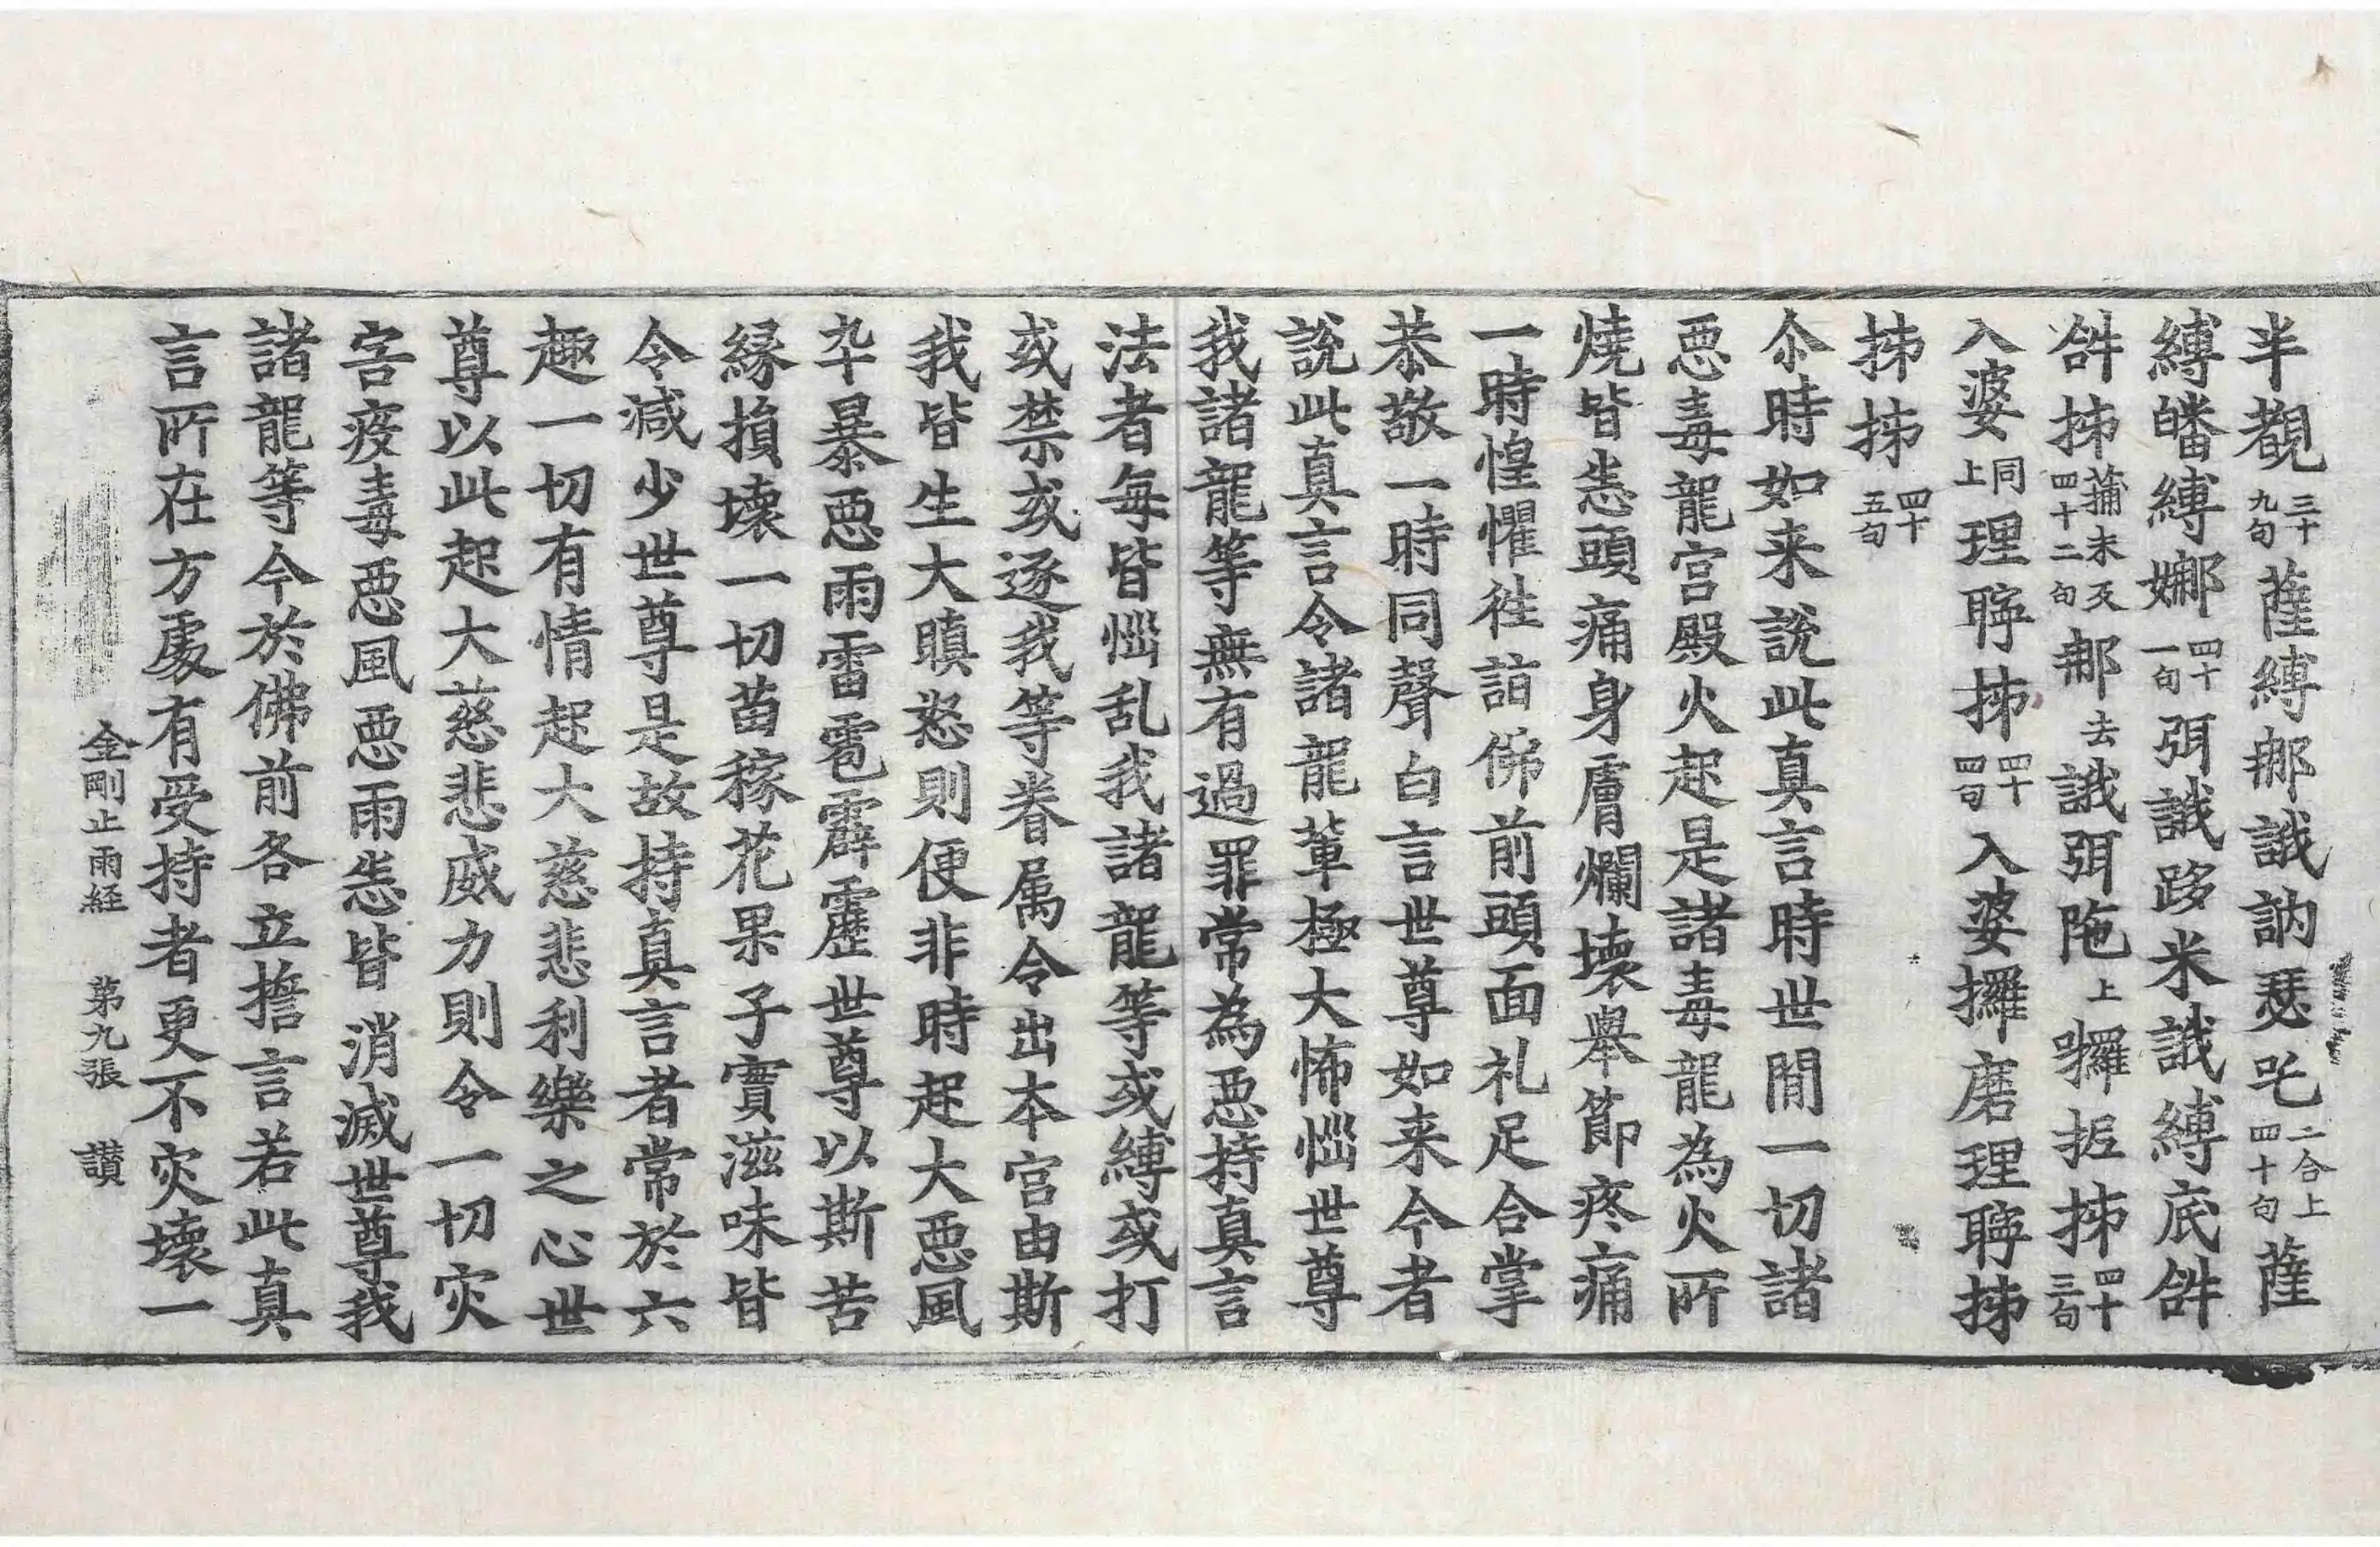 半覩三十九句薩縛郍誐訥瑟吒二合上四十句薩
縛皤縛娜四十一句弭誐跢米誐縛底㖃
㖃抪蒲未反四十二句郍去誐弭陁上囉抳抪四十三句
入婆同上理聹抪四十四句入婆攞磨理聹抪
抪抪四十五句
尒時如来說此真言時世閒一切諸
惡毒龍宫殿火起是諸毒龍為火所
燒皆悉頭痛身膚爛壞舉節疼痛
一時惶懼徃詣佛前頭面礼足合掌
恭敬一時同聲白言世尊如来今者
說此真言令諸龍軰極大怖惱世尊
我諸龍等無有過罪常為惡持真言
法者每皆惱乱我諸龍等或縛或打
或禁或逐我等眷属令出本宫由斯
我皆生大瞋怒則便非時起大惡風
卒暴惡雨雷雹霹靂世尊以斯苦
緣損壞一切苗稼花果子實滋味皆
令減少世尊是故持真言者常於六
趣一切有情起大慈悲利樂之心世
尊以此起大慈悲威力則令一切灾
害疫毒惡風惡雨悉皆消滅世尊我
諸龍等今於佛前各立擔言若此真
言所在方處有受持者更不灾壞一
金剛止雨経　第九張　讃